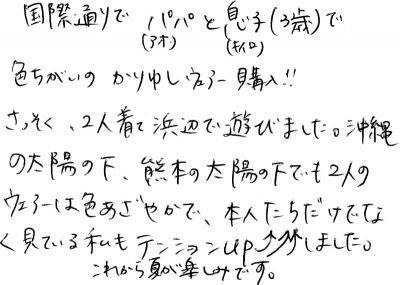 国際通りで パパと息子(3歳)で
(アオ) (キイロ)
色ちがいの かりゆしウェアー購入!!
さっそく、2人着て浜辺で遊びました。沖縄
の太陽の下、熊本の太陽の下でも2人の
ウェアーは色あざやかで、本人たちだけでな
く見ている私もテンションup↗↗↗しました。
これから夏が楽しみです。